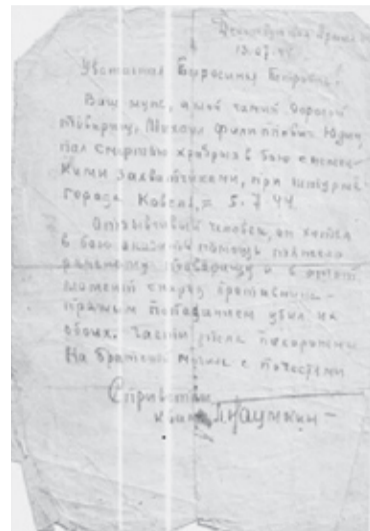 Действующая Армия
13.07.44
Уважаемая Ефросинья Петровна!
Ваш муж, а мой самый дорогой
товарищ, Михаил Филиппович
пал смертью храбрых в бою с немец-
кими захватчиками, при штурме
города Ковель, 5.7.44.
Отзывчивый человек, он хотел
в бою оказать помощь
раненому товарищу и в этот
момент снаряд противника
прямым попаданием убил их
обоих. Части тела похоронены
На братской могиле с почестями
С приветом
к вам Наумкин